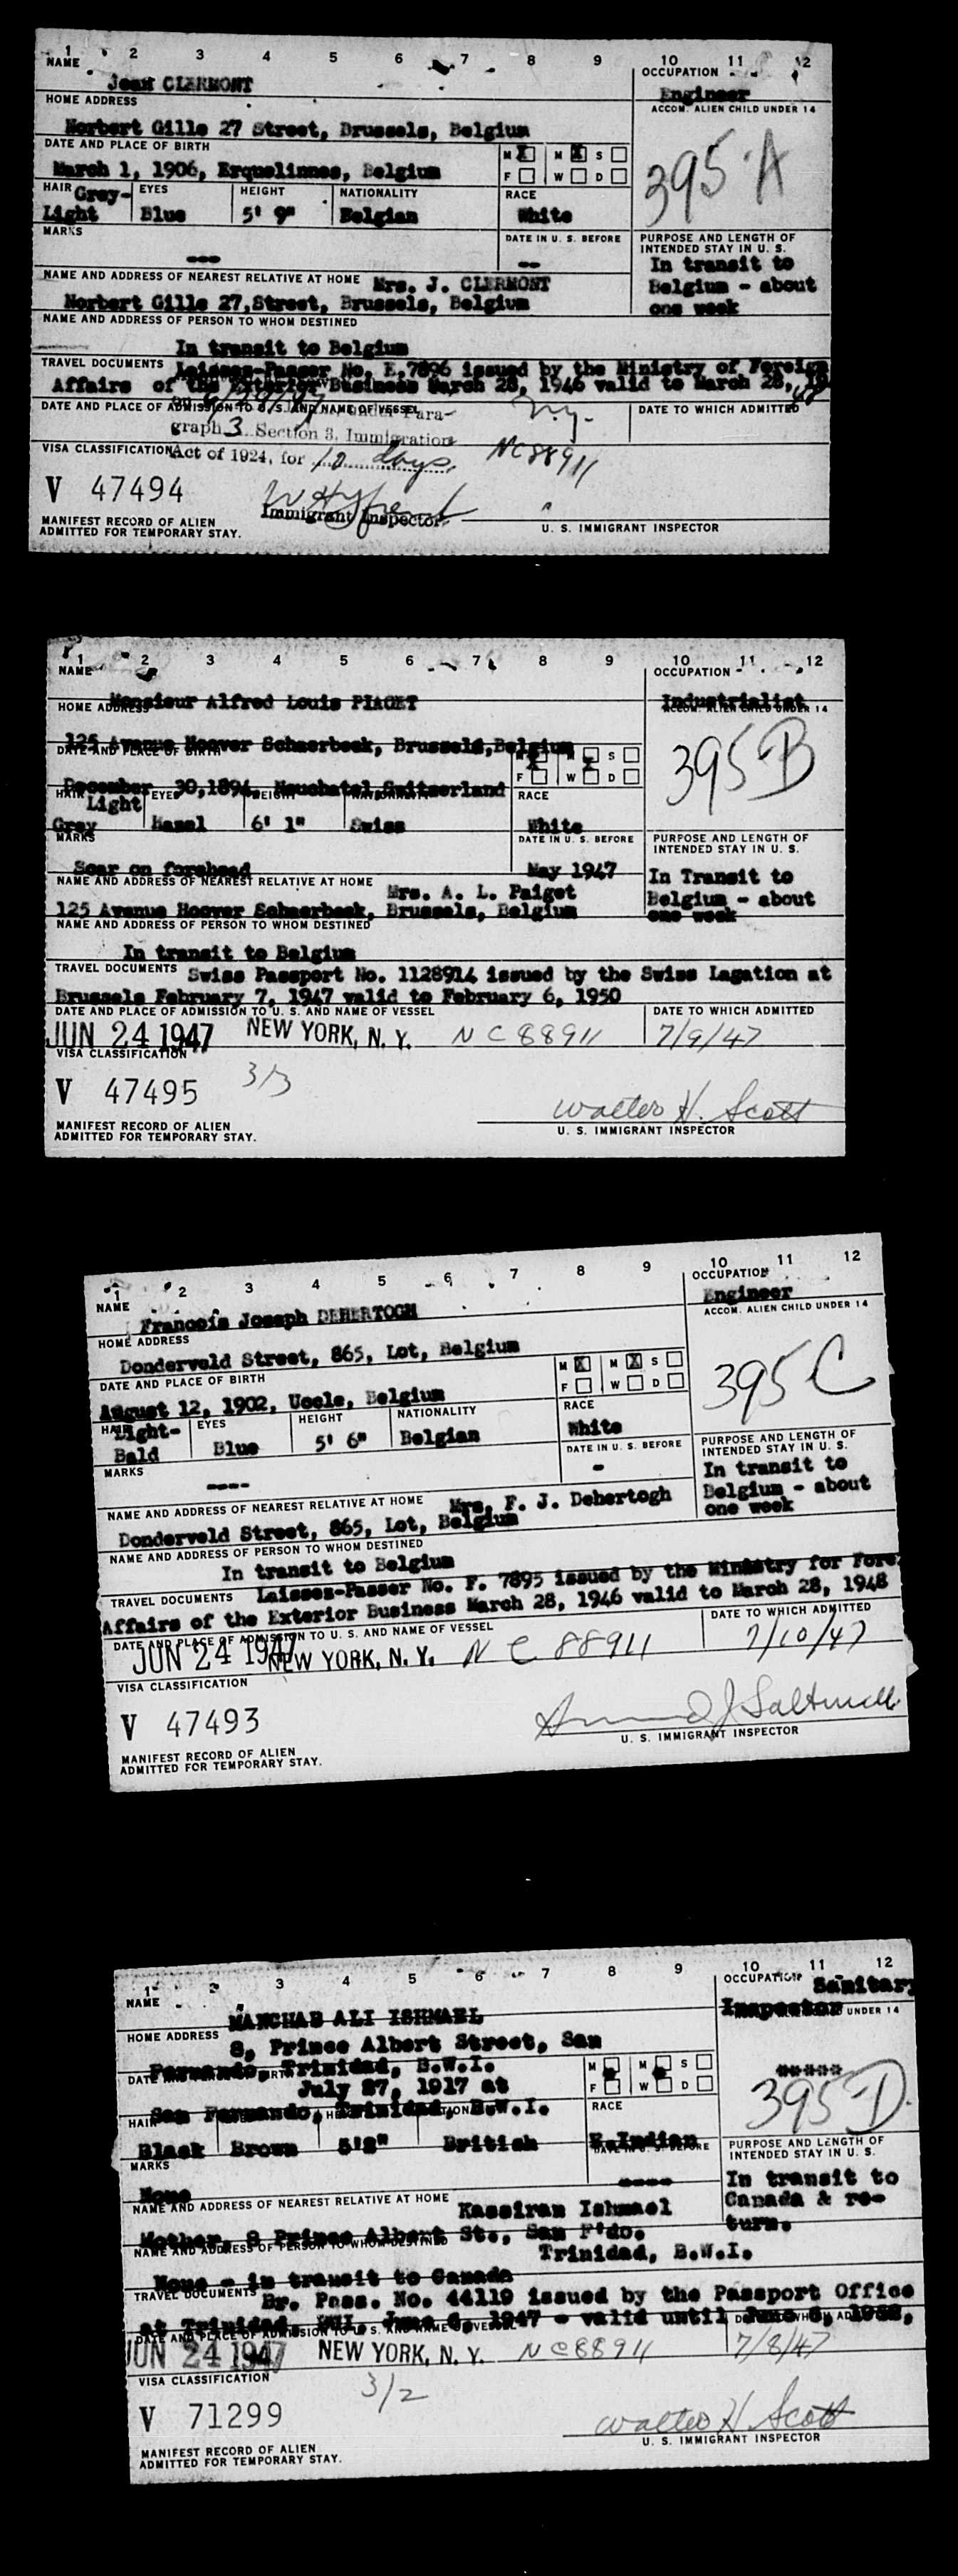 1 2 3 4 5 6 7 8 9 10 11 12
NAME OCCUPATION
Jean CLERMONT Engineer
HOME ADDRESS ACCOM. ALIEN CHILD UNDER 14
Norbert Gille 27 Street, Brussels, Belgium 395 A
DATE AND PLACE OF BIRTH M X M X S
March 1, 1906, Erquelinnes, Belgium F W D
HAIR Grey- EYES HEIGHT NATIONALITY RACE
Light Blue 5' 9" Belgian White
MARKS DATE IN U. S. BEFORE PURPOSE AND LENGTH OF INTENDED STAY IN U. S.
--- -- In transit to
NAME AND ADDRESS OF NEAREST RELATIVE AT HOME Mrs. J. CLERMONT Belgium - about
Norbert Gille 27,Street, Brussels, Belgium one week
NAME AND ADDRESS OF PERSON TO WHOM DESTINED
In transit to Belgium
TRAVEL DOCUMENTS Laisses-Passer No. E.7896 issued by the Ministry of Foreign
Affairs of the Exterior Business March 28, 1946 valid to March 28, 1948
DATE AND PLACE OF ADMISSION TO U. S. AND NAME OF VESSEL DATE TO WHICH ADMITTED
under Para- N.Y.
graph 3 Section 3, Immigration
VISA CLASSIFICATION Act of 1924, for 10 days. NC88911
V 47494
Immigrant Inspector
MANIFEST RECORD OF ALIEN U. S. IMMIGRANT INSPECTOR
ADMITTED FOR TEMPORARY STAY.
1 2 3 4 5 6 7 8 9 10 11 12
NAME OCCUPATION
Monsieur Alfred Louis PIAGET Industrialist
HOME ADDRESS ACCOM. ALIEN CHILD UNDER 14
125 Avenue Hoover Schaerbeek, Brussels,Belgium 395 B
DATE AND PLACE OF BIRTH M X M X S
December 30,1894, Neuchatel Switzerland F W D
HAIR Light EYES HEIGHT NATIONALITY RACE
Grey Hazel 6' 1" Swiss White
MARKS DATE IN U. S. BEFORE PURPOSE AND LENGTH OF INTENDED STAY IN U. S.
Scar on forehead May 1947 In Transit to
NAME AND ADDRESS OF NEAREST RELATIVE AT HOME Mrs. A. L. Paiget Belgium - about
125 Avenue Hoover Schaerbeek, Brussels, Belgium one week
NAME AND ADDRESS OF PERSON TO WHOM DESTINED
In transit to Belgium
TRAVEL DOCUMENTS Swiss Passport No. 1128914 issued by the Swiss Lagation at
Brussels February 7, 1947 valid to February 6, 1950
DATE AND PLACE OF ADMISSION TO U. S. AND NAME OF VESSEL DATE TO WHICH ADMITTED
JUN 24 1947 NEW YORK, N. Y. NC88911 7/9/47
VISA CLASSIFICATION
V 47495 3/3
Walter H. Scott
MANIFEST RECORD OF ALIEN U. S. IMMIGRANT INSPECTOR
ADMITTED FOR TEMPORARY STAY.
1 2 3 4 5 6 7 8 9 10 11 12
NAME OCCUPATION
Francois Joseph DEBERTOGH Engineer
HOME ADDRESS ACCOM. ALIEN CHILD UNDER 14
Donderveld Street, 865, Lot, Belgium 395 C
DATE AND PLACE OF BIRTH M X M X S
August 12, 1902, Uccle, Belgium F W D
HAIR Light- EYES HEIGHT NATIONALITY RACE
Bald Blue 5' 6" Belgian White
MARKS DATE IN U. S. BEFORE PURPOSE AND LENGTH OF INTENDED STAY IN U. S.
---- - In transit to
NAME AND ADDRESS OF NEAREST RELATIVE AT HOME Mrs. F. J. Debertogh Belgium - about
Donderveld Street, 865, Lot, Belgium one week
NAME AND ADDRESS OF PERSON TO WHOM DESTINED
In transit to Belgium
TRAVEL DOCUMENTS Laisses-Passer No. F. 7895 issued by the Ministry for Fore
Affairs of the Exterior Business March 28, 1946 valid to March 28, 1948
DATE AND PLACE OF ADMISSION TO U. S. AND NAME OF VESSEL DATE TO WHICH ADMITTED
JUN 24 1947 NEW YORK, N. Y. NC 88911 7/10/47
VISA CLASSIFICATION
V 47493
MANIFEST RECORD OF ALIEN U. S. IMMIGRANT INSPECTOR
ADMITTED FOR TEMPORARY STAY.
1 2 3 4 5 6 7 8 9 10 11 12
NAME OCCUPATION Sanitary
MANCHAB ALI ISHMAEL Inspector UNDER 14
HOME ADDRESS 8, Prince Albert Street, San
Fernando, Trinidad, B.W.I. M M S *****
July 27, 1917 at F W D 395 D.
San Fernando, Trinidad, B.W.I. RACE
Black Brown 5'8" British E.Indian
MARKS ---- PURPOSE AND LENGTH OF INTENDED STAY IN U. S.
None In transit to
NAME AND ADDRESS OF NEAREST RELATIVE AT HOME Kassiran Ishmael Canada & re-
Mother, 8 Prince Albert St., San F'do. turn.
NAME AND ADDRESS OF PERSON TO WHOM DESTINED Trinidad, B.W.I.
None - in transit to Canada
TRAVEL DOCUMENTS Br. Pass. No. 44119 issued by the Passport Office
at Trinidad, BWI. June 6, 1947 - valid until June 6, 1952,
DATE AND PLACE OF ADMISSION TO U. S. AND NAME OF VESSEL
JUN 24 1947 NEW YORK, N. Y. NC88911 7/8/47
VISA CLASSIFICATION 3/2
V 71299
Walter H Scott
MANIFEST RECORD OF ALIEN U. S. IMMIGRANT INSPECTOR
ADMITTED FOR TEMPORARY STAY.